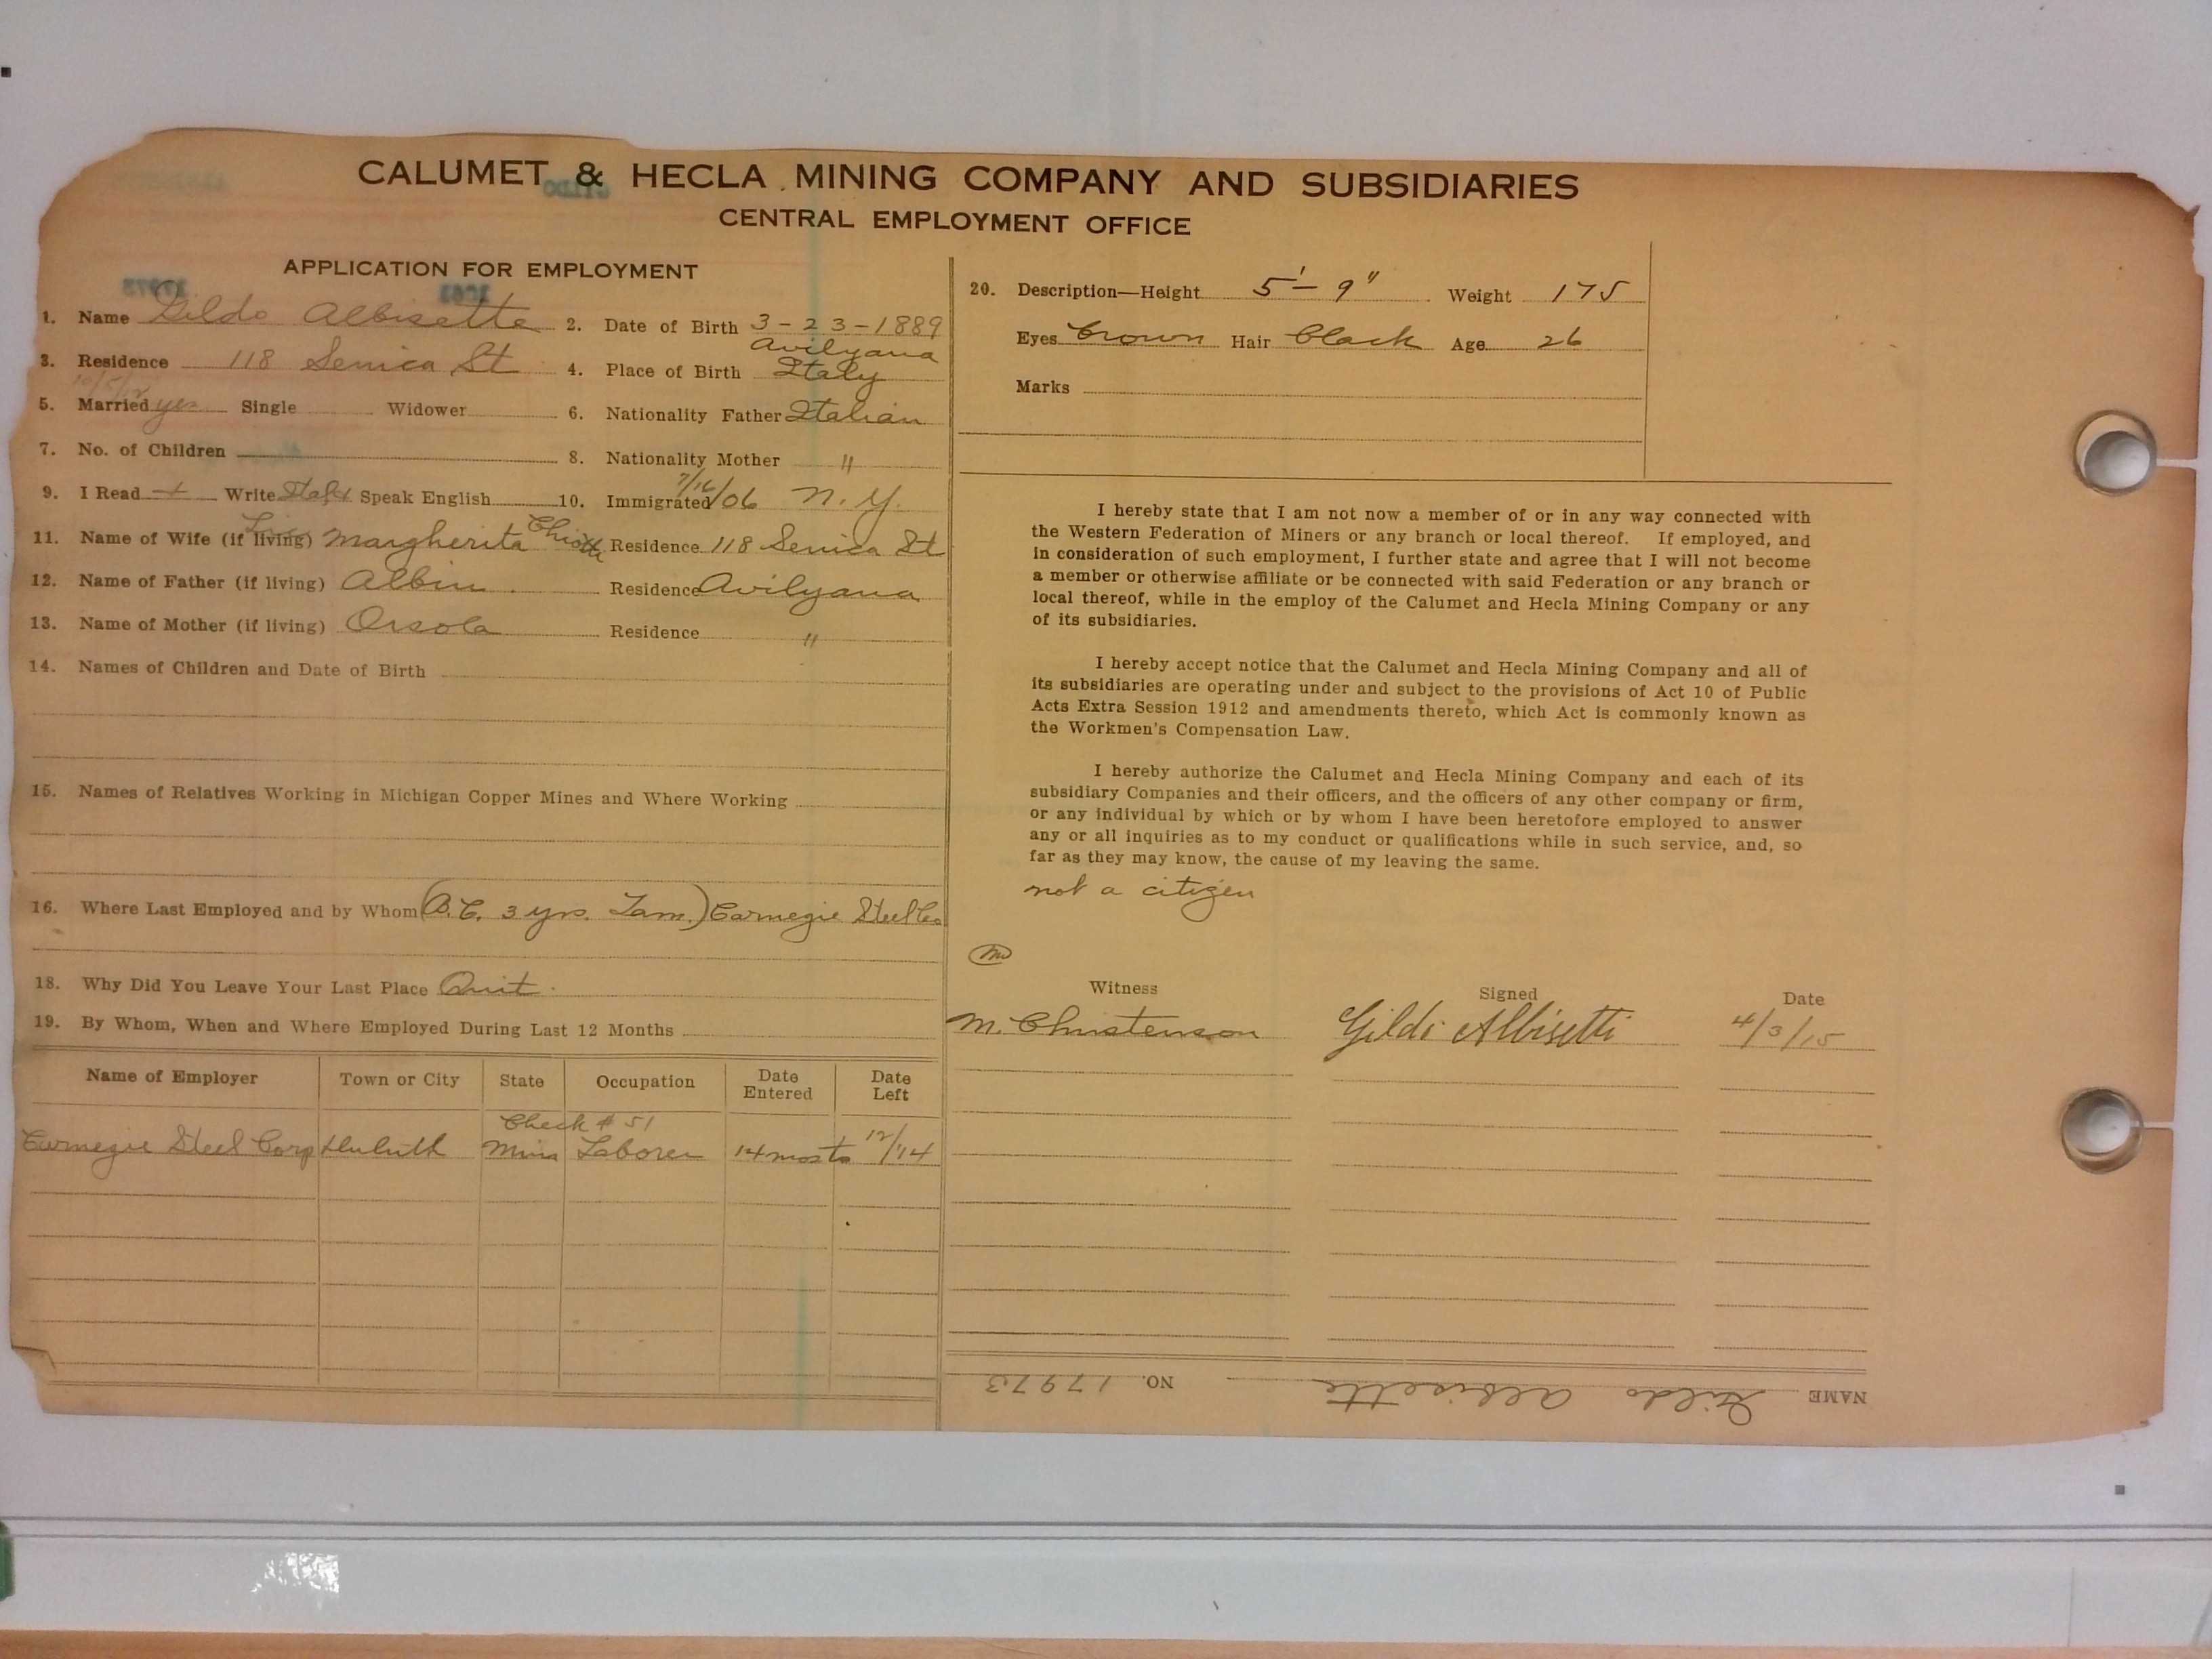 CALUMET & HECLA MINING COMPANY AND SUBSIDIARIES
CENTRAL EMPLOYMENT OFFICE
APPLICATION FOR EMPLOYMENT
1. Name Gildo Albisette 2. Date of Birth 3-23-1889
Avilyana
3. Residence 118 Senica St 4. Place of Birth Italy
10/5/12
5. Married yes Single Widower 6. Nationality Father Italian
7. No. of Children 8. Nationality Mother "
7/16
9. I Read + Write Ital Speak English 10. Immigrated /06 N.Y.
11. Name of Wife (if living) Margherita Residence 118 Senica St
12. Name of Father (if living) Albin Residence Avilyana
13. Name of Mother (if living) Orsola Residence "
14. Names of Children and Date of Birth
15. Names of Relatives Working in Michigan Copper Mines and Where Working
16. Where Last Employed and by Whom (B.C. 3 yrs. Tam.) Carnegie Steel Co
18. Why Did You Leave Your Last Place Quit.
19. By Whom, When and Where Employed During Last 12 Months
Name of Employer Town or City State Occupation Date Entered Date Left
Check # 51
Carnegie Steel Corp Duluth Minn Laborer 14 mos to 12/14
20. Description—Height 5'-9" Weight 175
Eyes brown Hair black Age 26
Marks
I hereby state that I am not now a member of or in any way connected with
the Western Federation of Miners or any branch or local thereof. If employed, and
in consideration of such employment, I further state and agree that I will not become
a member or otherwise affiliate or be connected with said Federation or any branch or
local thereof, while in the employ of the Calumet and Hecla Mining Company or any
of its subsidiaries.
I hereby accept notice that the Calumet and Hecla Mining Company and all of
its subsidiaries are operating under and subject to the provisions of Act 10 of Public
Acts Extra Session 1912 and amendments thereto, which Act is commonly known as
the Workmen's Compensation Law.
I hereby authorize the Calumet and Hecla Mining Company and each of its
subsidiary Companies and their officers, and the officers of any other company or firm,
or any individual by which or by whom I have been heretofore employed to answer
any or all inquiries as to my conduct or qualifications while in such service, and, so
far as they may know, the cause of my leaving the same.
not a citizen
Witness Signed Date
M. Christenson Gildo Albisetti 4/3/15
NAME Gildo Albisette NO. 17973